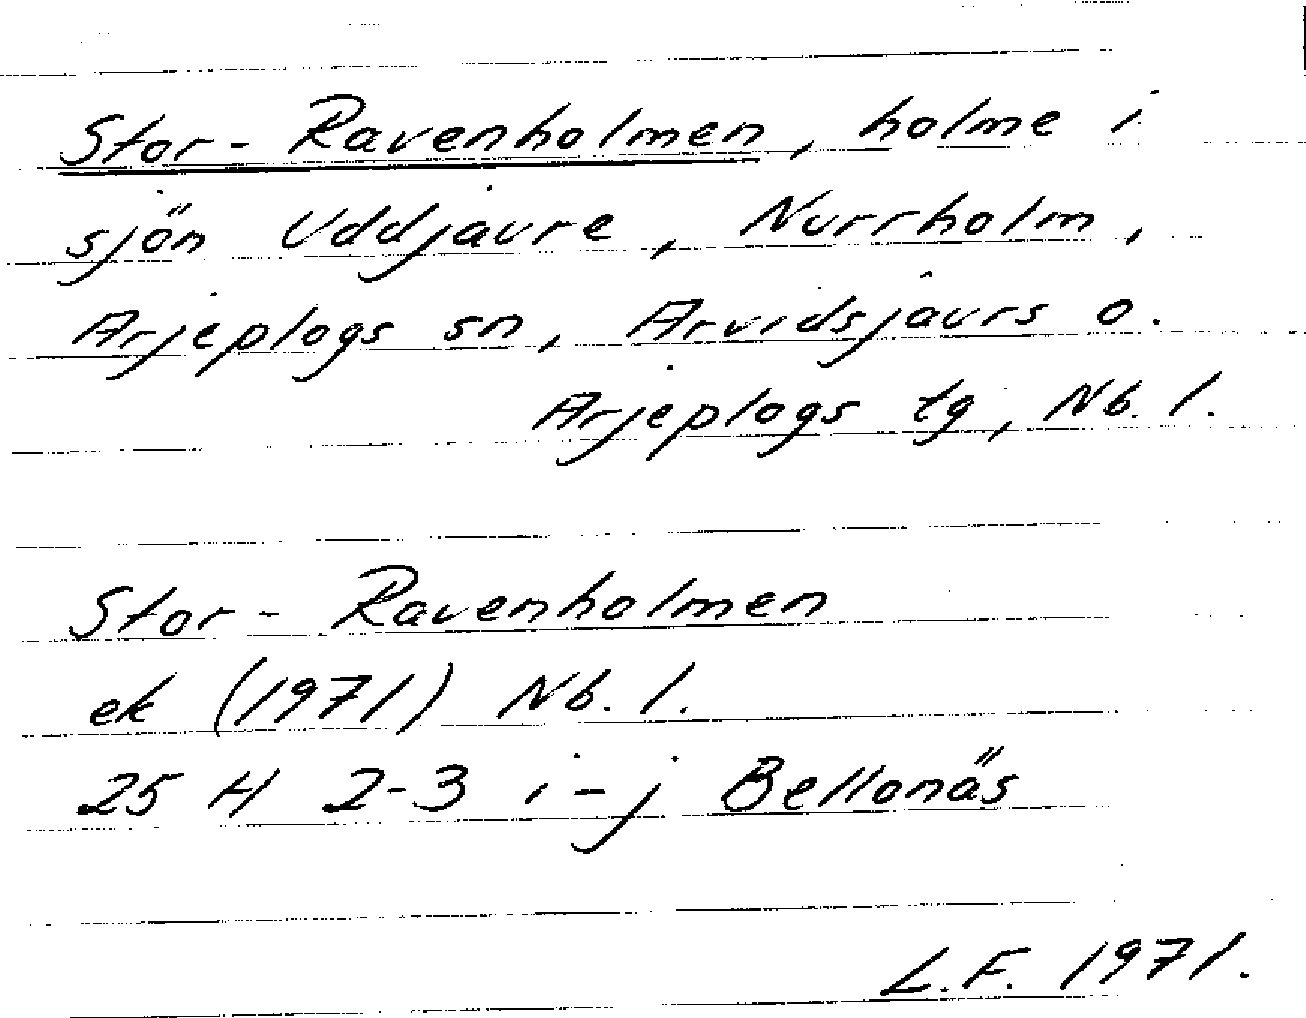 Stor-Ravenholmen, holme i
sjön Uddjaure, Nurrholm,
Arjeplogs sn, Arvidsjaurs o.
Arjeplogs tg, Nb. l.
Stor-Ravenholmen
ek (1971) Nb. l.
25 H 2-3 i-j Bellonäs
L.F. 1971.